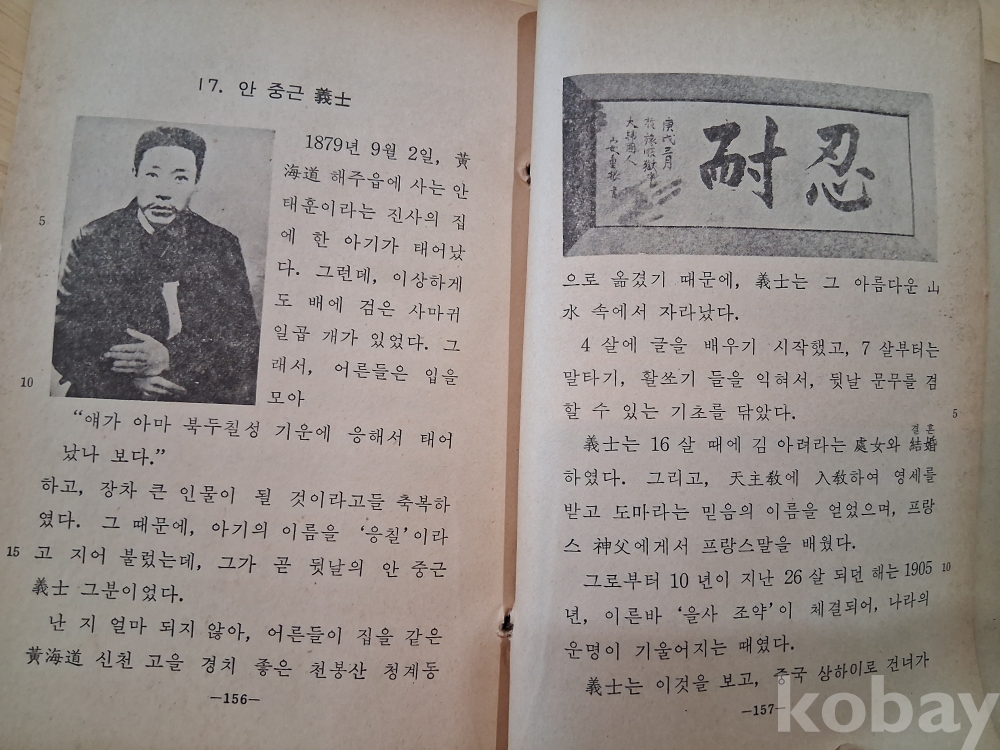 17. 안 중근 義士
1879년 9월 2일, 黃
海道 해주읍에 사는 안
태훈이라는 진사의 집
5
에 한 아기가 태어났
다. 그런데, 이상하게
도 배에 검은 사마귀
일곱 개가 있었다. 그
래서, 어른들은 입을
10
모아
“얘가 아마 북두칠성 기운에 응해서 태어
났나 보다.”
하고, 장차 큰 인물이 될 것이라고들 축복하
였다. 그 때문에, 아기의 이름을 ‘응칠’이라
15 고 지어 불렀는데, 그가 곧 뒷날의 안 중근
義士 그분이었다.
난 지 얼마 되지 않아, 어른들이 집을 같은
黃海道 신천 고을 경치 좋은 천봉산 청계동
—156—
忍耐
庚戌三月
大韓國人
安重根 書
으로 옮겼기 때문에, 義士는 그 아름다운 山
水 속에서 자라났다.
4 살에 글을 배우기 시작했고, 7 살부터는
말타기, 활쏘기 들을 익혀서, 뒷날 문무를 겸
할 수 있는 기초를 닦았다. 5
결혼
義士는 16 살 때에 김 아려라는 處女와 結婚
하였다. 그리고, 天主敎에 入敎하여 영세를
받고 도마라는 믿음의 이름을 얻었으며, 프랑
스 神父에게서 프랑스말을 배웠다.
그로부터 10 년이 지난 26 살 되던 해는 1905 10
년, 이른바 ‘을사 조약’이 체결되어, 나라의
운명이 기울어지는 때였다.
義士는 이것을 보고, 중국 상하이로 건너가
—157—
kobay